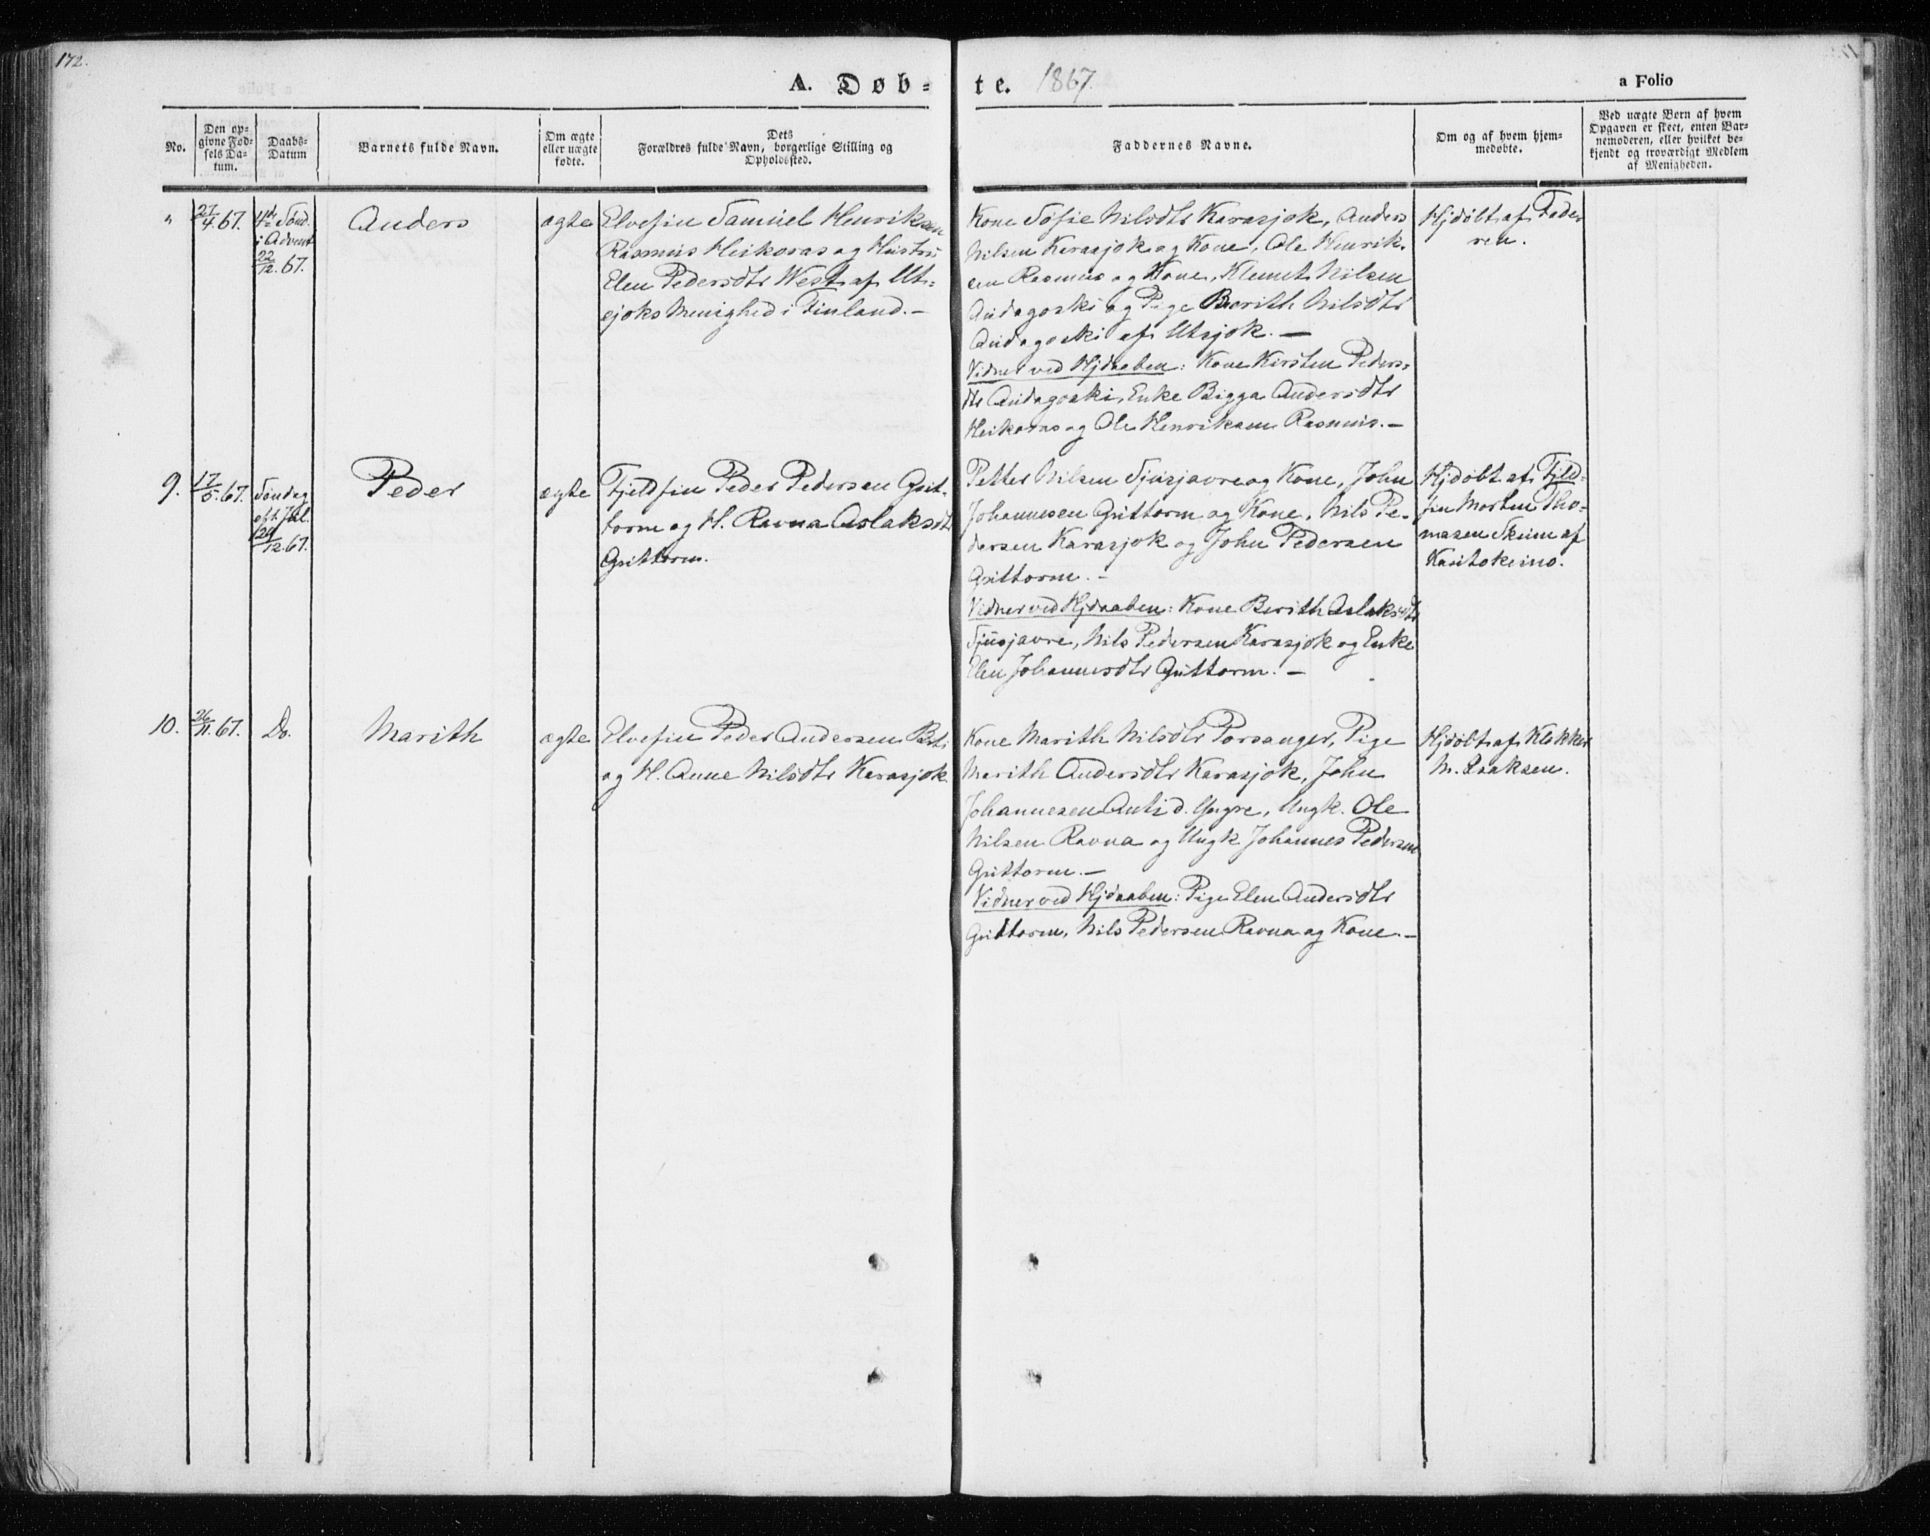 172.
A. Døb-
te. 1867.
a Folio
No.
Den op-
givne Fød-
sels Da-
tum.
Daabs-
Datum
Barnets fulde Navn.
Om ægte
eller uægte
fødte.
Dets
Forældres fulde Navn, borgerlige Stilling og
Opholdssted.
Faddernes Navne.
Om og af hvem hjem-
medøbte.
Ved uægte Børn af hvem
Opgaven er skeet, enten Bar-
nemoderen, eller hvilket be-
kjendt og troværdigt Medlem
af Menigheden.
"
27/4.67.
4de Sønd.
i Advent
22/12.67.
Anders
ægte
Elvefin Samuel Henriksen
Rasmus Heikoras og Hustru
Elen Pedersdtr West af Ut-
sjoks Menighed i Finland.-
Kone Sofie Nilsdtr Karasjok, Anders
Nilsen Karasjok og Kone, Ole Henrik-
sen Rasmus og Kone, Klemet Nilsen
Audagoski og Pige Berith Nilsdtr
Audagoski af Utsjok. -
Vidner ved Hjdaaben: Kone Kirsten Peders-
dtr Audagoski, Enke Bigga Andersdtr
Heikoras og Ole Henriksen Rasmus. -
Hjdøbt af Fade-
ren.
9.
17/5.67.
Søndag
eft. Jul.
29/12.67.
Peder
ægte
Fjeldfin Peder Pedersen Gut-
torm og H. Ravna Aslaksdtr
Guttorm.
Petter Nilsen Sjusjavre og Kone, John
Johannesen Guttorm og Kone, Nils Pe-
dersen Karasjok og John Pedersen
Guttorm. -
Vidner ved Hjdaaben: Kone Berith Aslaksdtr
Sjusjavre, Nils Pedersen Karasjok og Enke
Elen Johannesdtr Guttorm. -
Hjdøbt af Fjeld-
fin Morten Tho-
masen Skum af
Kautokeino.
10.
26/11.67.
Do.
Marith
ægte
Elvefin Peder Andersen
og H. Anne Nilsdtr Karasjok
Kone Marith Nilsdtr Porsanger, Pige
Marith Andersdtr Karasjok, John
Johannesen Anti d. Yngre, Ungk. Ole
Nilsen Ravna og Ungk Johannes Pedersen
Guttorm. -
Vidner ved Hjdaaben: Pige Elen Andersdtr
Guttorm, Nils Pedersen Ravna og Kone. -
Hjdøbt af Klokker
M. Isaksen.